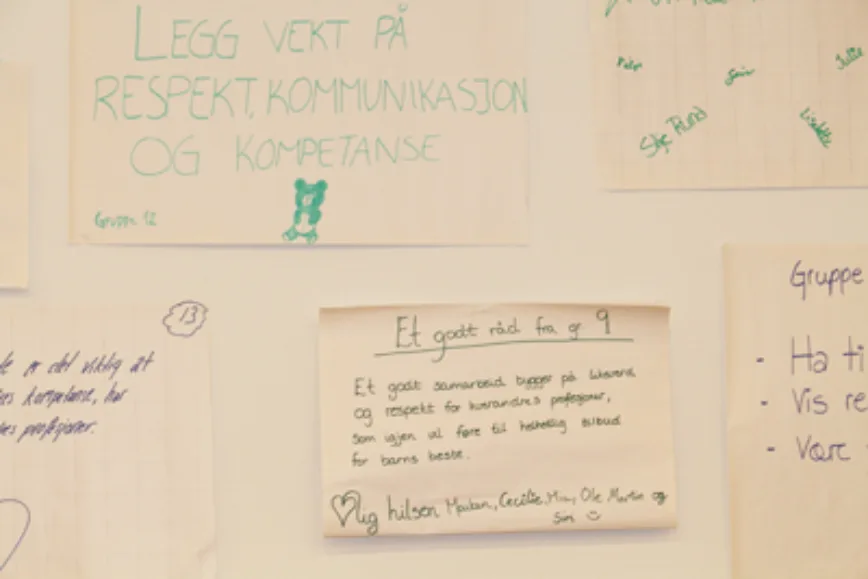 LEGG VEKT PÅ
RESPEKT, KOMMUNIKASJON
OG KOMPETANSE
Gruppe 12
13
er det viktig åt
kompetanse, har
profesjoner.
Et godt råd fra gr 9
Et godt samarbeid bygger på
og respekt for hverandres profesjoner,
som igjen vil føre til helhetlig tilbud
for barns beste.
lig hilsen Cecilie, Mia, Ole Martin og
Siri
Gruppe
- Ha ti
- Vis re
- Være
Julie